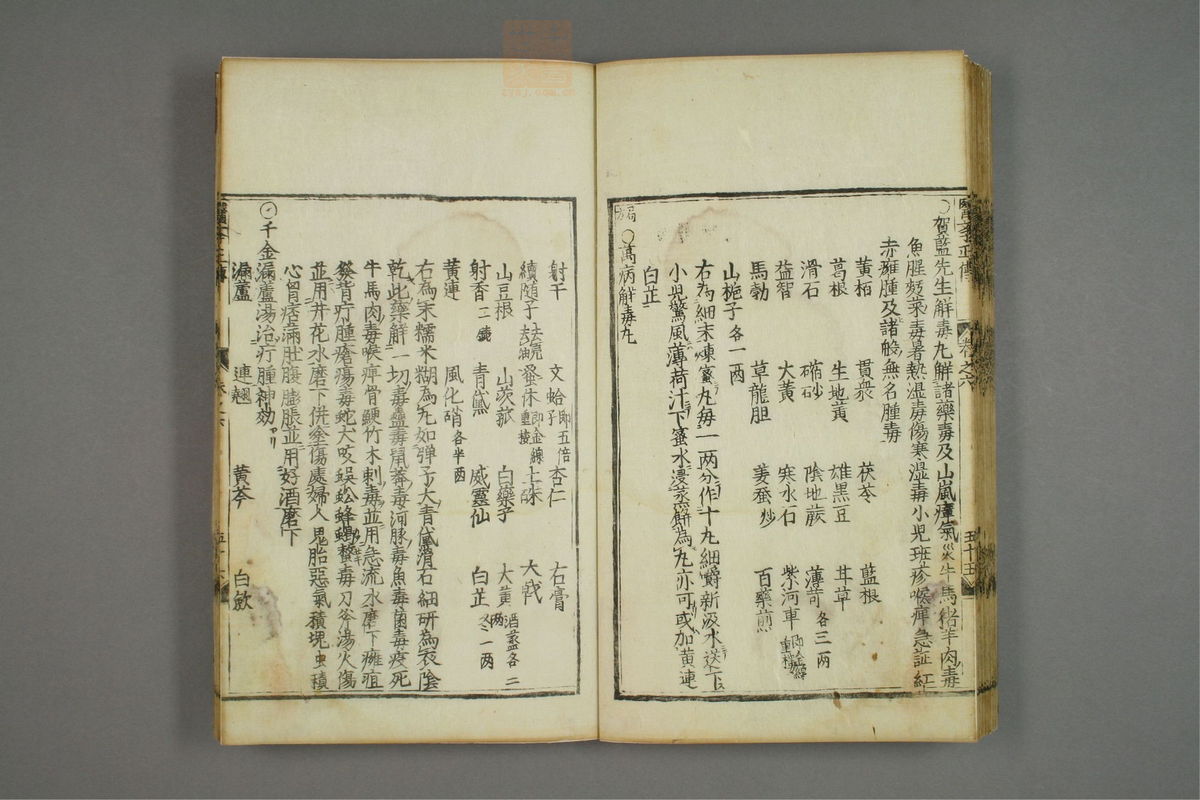 醫學正傳 卷之六 五十五
○賀蓝先生解毒丸解諸藥毒及山嵐瘴氣災牛馬猪羊肉毒
魚腥麪菜毒暑熱湿毒傷寒湿毒小児斑疹喉痺急証紅
赤癰腫及諸般無名腫毒
黄栢 貫衆 茯苓 藍根
葛根 生地黄 雄黒豆 甘草
滑石 硇砂 陰地蕨 薄荷各三两
益智 大黄 寒水石 紫河車
馬勃 草龍胆 姜蚕炒 百藥煎
山梔子各一两
右為細末煉蜜丸毎一两分作十丸細嚼新汲水送下
小児驚風薄荷汁下蜜水浸蒸餅為丸亦可或加黄連
白芷
○萬病解毒丸
射干 文蛤即五倍子 杏仁 石膏
續随子去殻去油 蚤休即金線重楼 土硃 大戟
山豆根 山茨菰 白藥子 大黄酒蒸各二两
射香二錢 青黛 威靈仙 白芷各一两
黄連 風化硝各半两
右為末糯米糊為丸如弾子大青黛滑石細研為衣陰
乾此藥解一切毒蠱毒鼠莽毒河豚毒魚毒菌毒疫死
牛馬肉毒喉痺骨鯁竹木刺毒並用急流水磨下癰疽
發背疔腫瘡瘍毒蛇犬咬蜈蚣蜂蝎螫毒刀斧湯火傷
並用井花水磨下併塗傷處婦人鬼胎惡氣積塊虫積
心胷痞滿肚腹膨脹並用好酒磨下
千金漏蘆湯治疔腫神効
漏蘆 連翹 黄芩 白斂